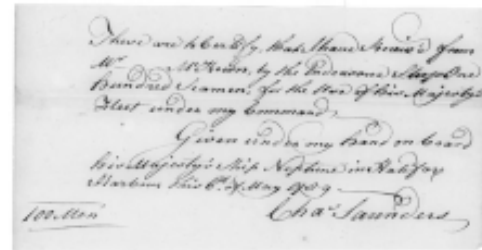 These are to Certify, that I have Receiv'd from
Mr. by the Endeavour Sloop One
Hundred Seamen, for the Use of his Majesty's
Fleet under my Command.
Given under my hand on board
his Majesty's Ship Neptune in Halifax
Harbour this 6th. of May 1759
100 Men
Chas. Saunders